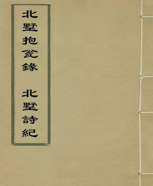 北墅抱瓮録 北墅詩紀